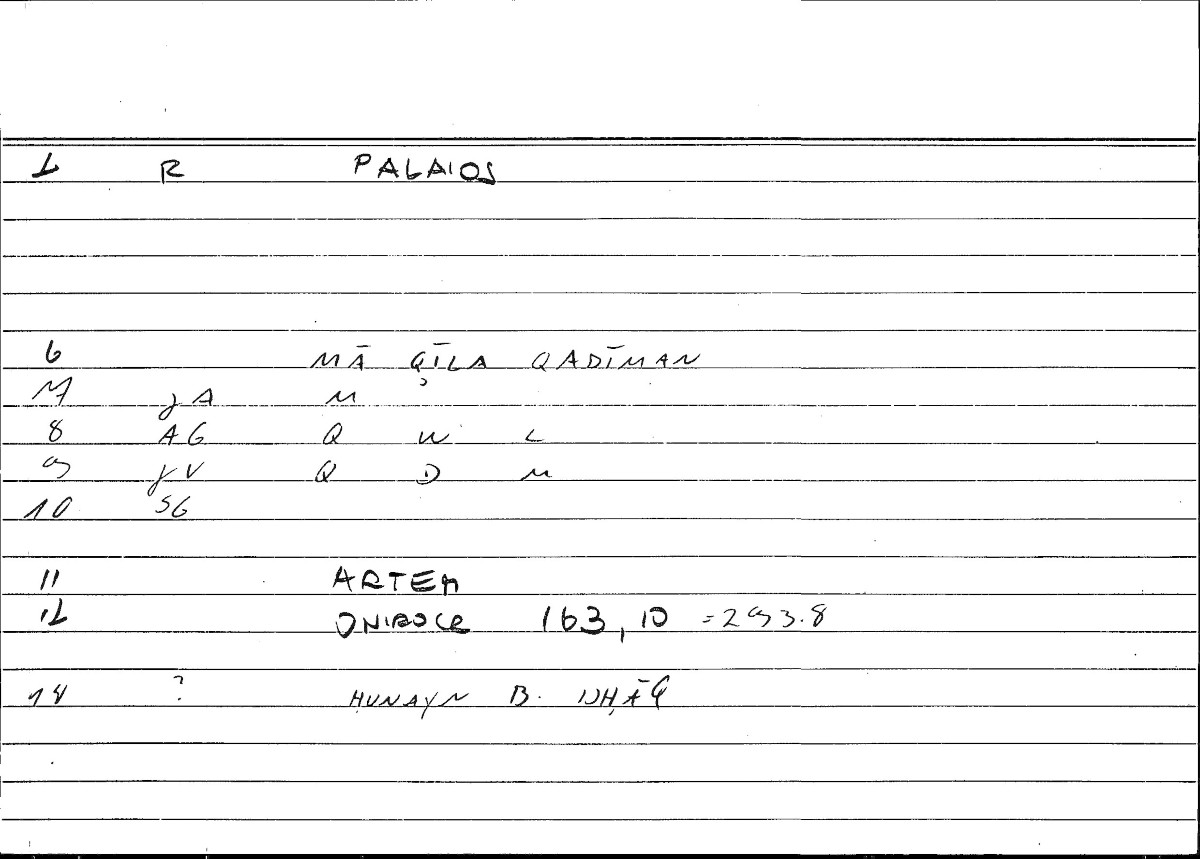 1 R PALAIOS
6 MĀ QĪLA QADĪMAN
7 JA M
8 AG Q W L
9 JV Q D M
10 SG
11 ARTEM
12 ONIROCR 163, 10 = 293.8
14 ? ḤUNAYN B. ISḤĀQ